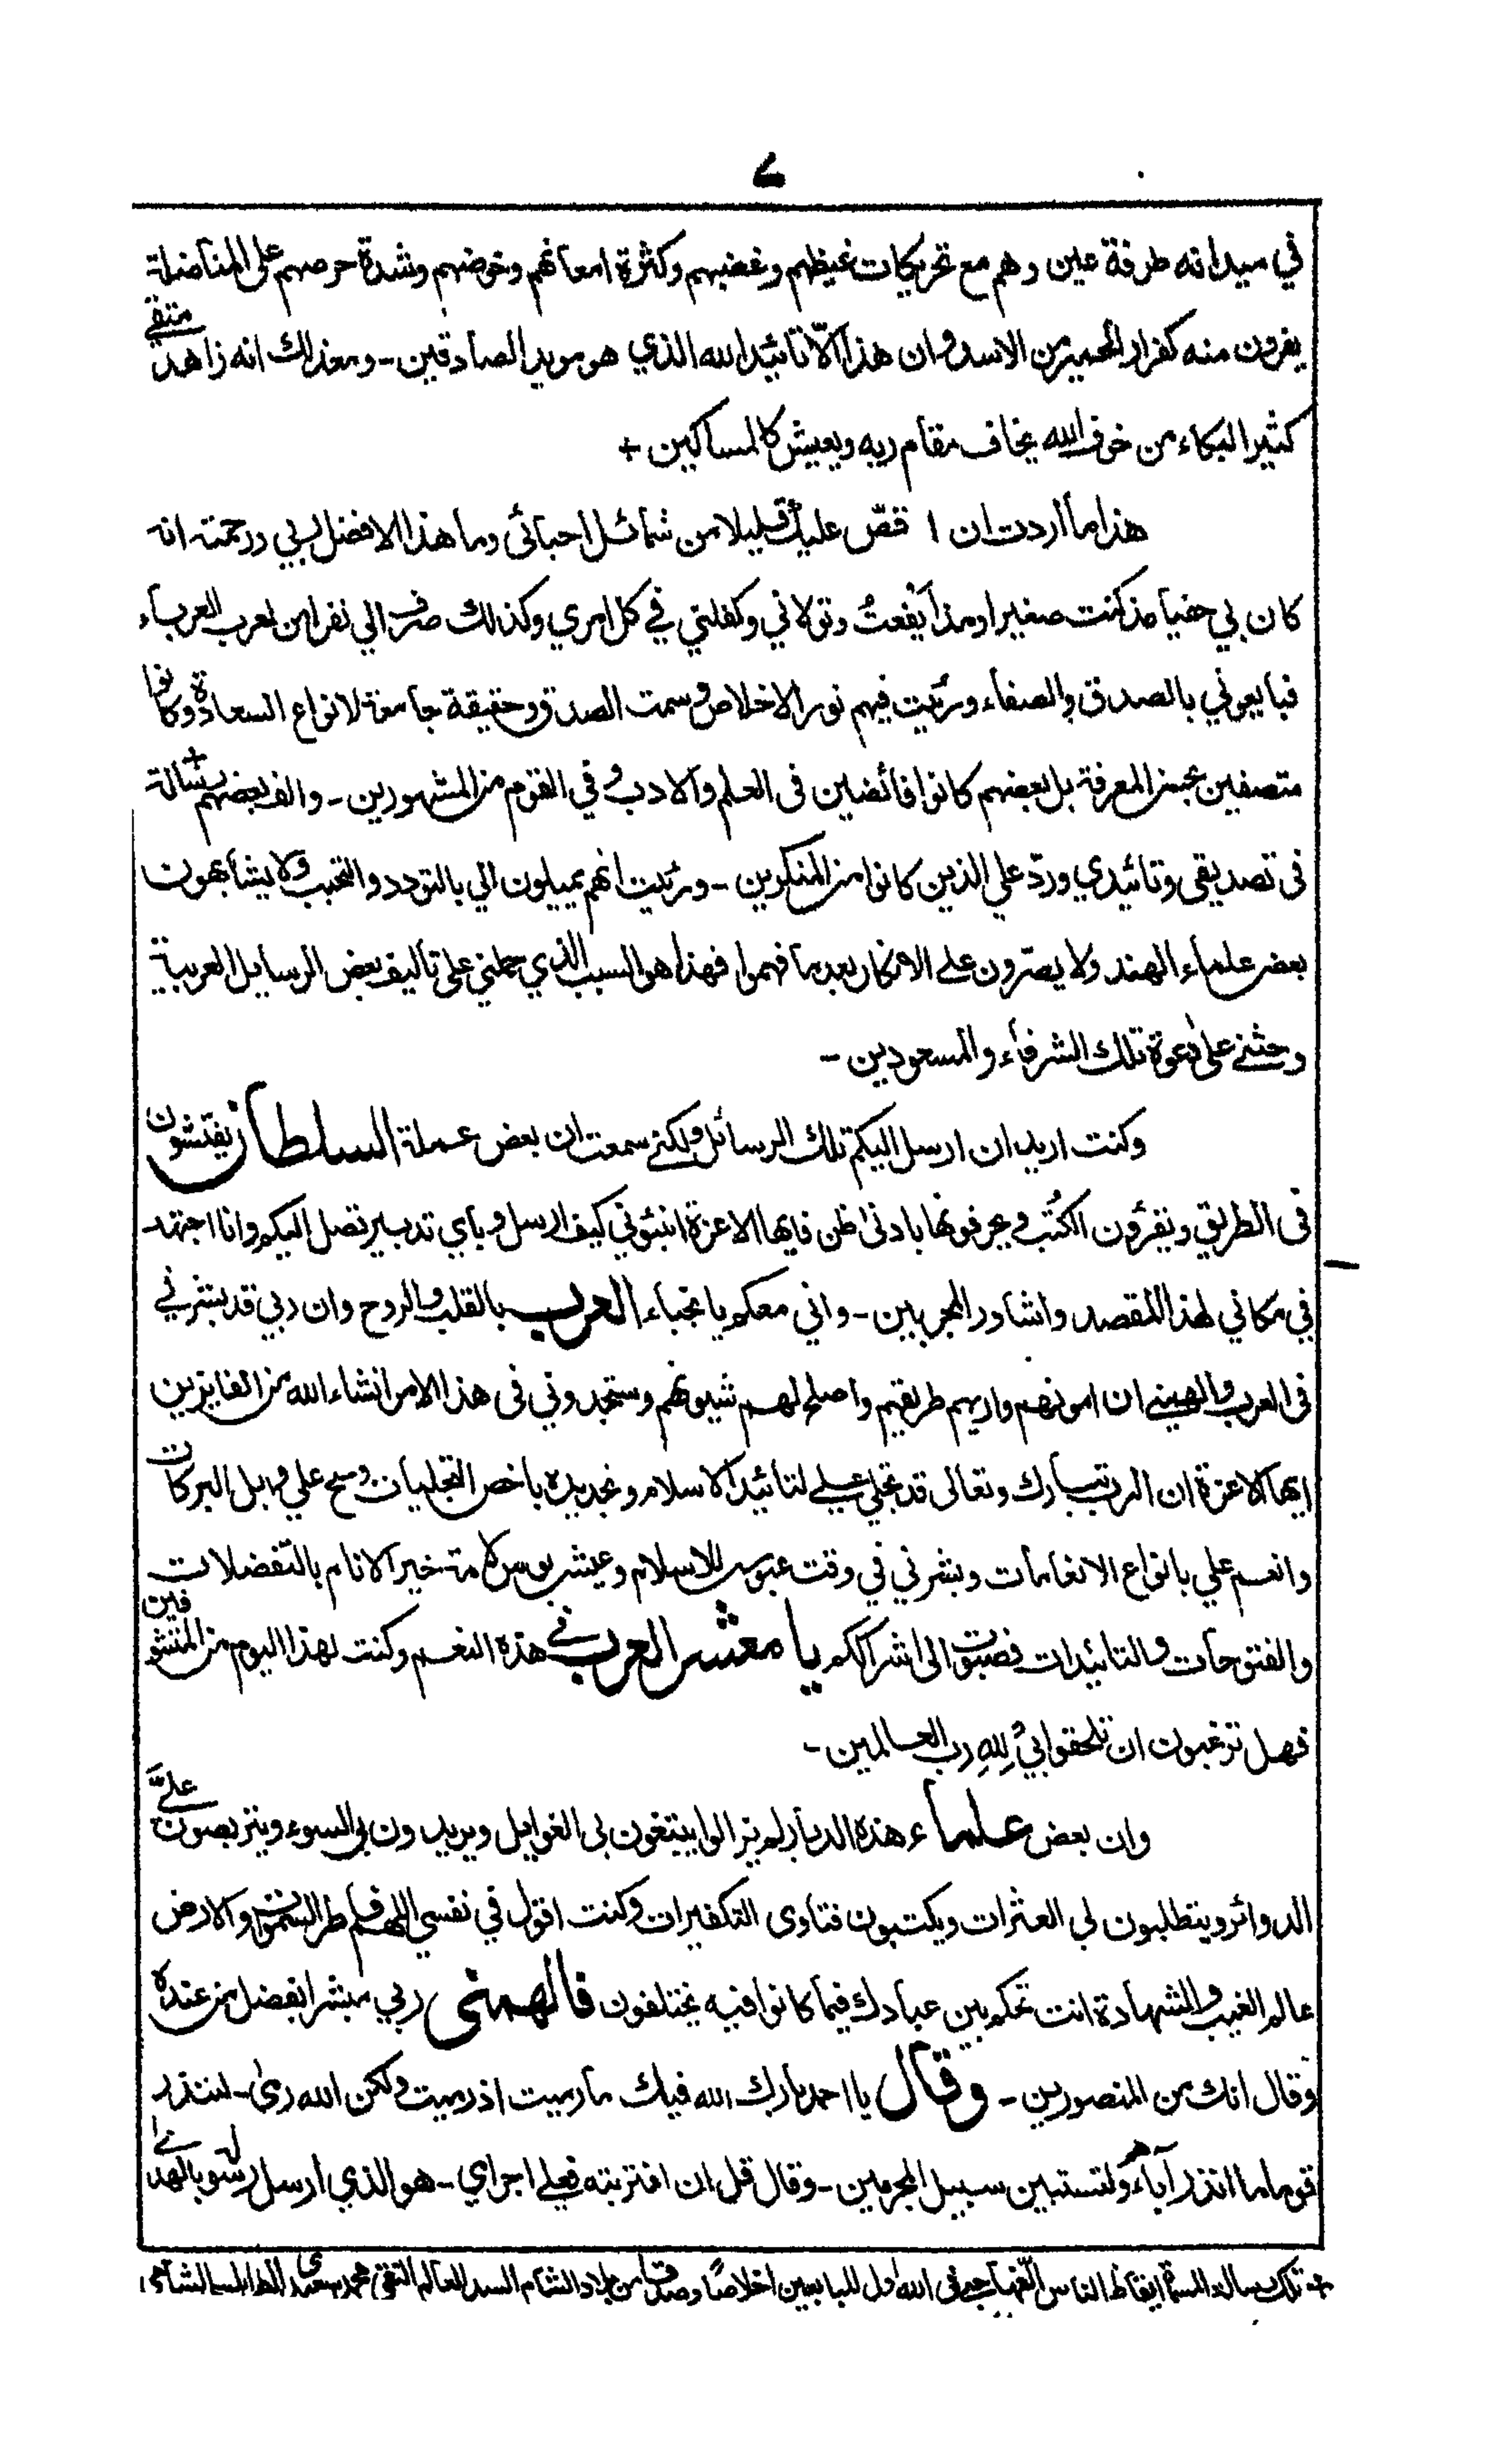 ٧
في ميدانه طرفة عين وهم مع تحريكات غيظهم وغضبهم وكثرة امعانهم وخوضهم وشدة حرصهم على المناضلة
يفرون منه كفرار الحمير من الاسد وان هذا الّا تائيد الله الذي هو مويد الصادقين - ومعذالك انه زاهد متقي
كثير البكاء من خوف الله يخاف مقام ربه ويعيش كالمساكين +
هذا ما أردت ان اقصّ عليك قليلا من شمائل احبائى وما هذا الا فضل ربي ورحمته انه
كان بي حفيا مذ كنت صغيرا ومذ أيفعتُ وتولاني وكفلني في كل امري وكذلك صرف الي نفرا من العرب العرباء
فبايعوني بالصدق والصفاء ورئيت فيهم نور الاخلاص وسمت الصدق وحقيقة جامعة لانواع السعادة وكانوا
متصفين بحسن المعرفة بل بعضهم كانوا فائضين فى العلم والادب وفي القوم من المشهورين - والف بعضهم رسالة +
فى تصديقى وتائيدي وردّ على الذين كانوا من المنكرين - ورئيت انهم يميلون الي بالتودد والتحبب ولا يشابهون
بعض علماء الهند ولا يصرّون على الانكار بعد ما فهموا فهذا هو السبب الذي حملني على تأليف بعض الرسايل العربية
وحثنے على دعوة تلك الشرفاء والمسعودين -
وكنت اريد ان ارسل اليكم تلك الرسائل ولكني سمعت ان بعض عملة السلطان يفتّشون
فى الطريق ويقرؤن الكُتُب ويحرفونها بادنى ظن فايها الاعزة انبئوني كيف ارسل وباي تدبير تصل اليكم وانا اجتهد
في مكاني لهذا المقصد واشاور المجربين - واني معكم يا نجباء العرب بالقلب والروح وان ربي قد بشرني
فى العرب والهمني ان امونهم واريهم طريقهم واصلح لهم شيونهم وستجدوني فى هذا الامر انشاء الله من الفايزين
ايها الاعزة ان الرب تبارك وتعالى قد تجلى علي لتائيد الاسلام وتجديده باخص التجليات وسح علي وابل البركات
وانعم علي بانواع الانعامات وبشرني في وقت عبوس للاسلام وعيش بوس لامة خير الانام بالتفضلات
والفتوحات والتائيدات فصبوت الى اشراككم يا معشر العرب في هذه النعم وكنت لهذا اليوم من المتشوفين
فهل ترغبون ان تلحقوا بيْ للهِ رب العالمين -
وان بعض علماء هذه الديار لم يزالوا يبتغون بى الغوايل ويريدون بى السوء ويتربصون عليَّ
الدوائر ويتطلبون لي العثرات ويكتبون فتاوى التكفيرات وكنت اقول في نفسي اللهم فاطر السموات والارض
عالم الغيب والشهادة انت تحكم بين عبادك فيما كانوا فيه يختلفون فالهمنى ربي مبشرا بفضل من عنده
وقال انك من المنصورين - وقال يا احمد بارك الله فيك ما رميت اذ رميت ولكن الله رمى - لتنذر
قوما ما انذر آباءهم ولتستبين سبيل المجرمين - وقال قل ان افتريته فعلي اجرامي - هو الذي ارسل رسوله بالهدى
+ تلك رسالة المسمّى ايقاظ الناس الّفها حبي فى الله اول المبايعين اخلاصًا وصدقًا من بلاد الشام السيد العالم التقي محمد سعيدى الطرابلسى الشامى